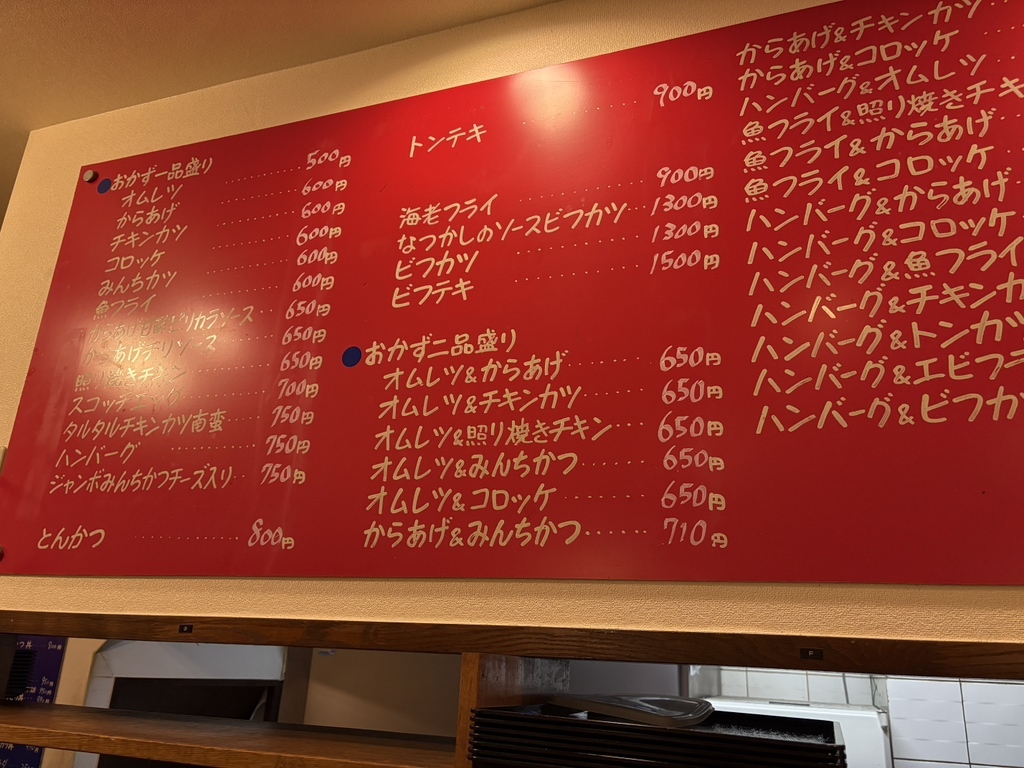 おかず一品盛り
オムレツ 500円
からあげ 600円
チキンカツ 600円
コロッケ 600円
みんちかつ 600円
魚フライ 600円
からあげ甘酢ピリカラソース 650円
からあげテリソース 650円
照り焼きチキン 650円
スコッチエッグ 700円
タルタルチキンカツ南蛮 750円
ハンバーグ 750円
ジャンボみんちかつチーズ入り 750円
とんかつ 800円
トンテキ 900円
海老フライ 900円
なつかしのソースビフカツ 1300円
ビフカツ 1300円
ビフテキ 1500円
おかず二品盛り
オムレツ&からあげ 650円
オムレツ&チキンカツ 650円
オムレツ&照り焼きチキン 650円
オムレツ&みんちかつ 650円
オムレツ&コロッケ 650円
からあげ&みんちかつ 710円
からあげ&チキンカツ
からあげ&コロッケ
ハンバーグ&オムレツ
魚フライ&照り焼きチキ
魚フライ&からあげ
魚フライ&コロッケ
ハンバーグ&からあげ
ハンバーグ&コロッケ
ハンバーグ&魚フライ
ハンバーグ&チキンカ
ハンバーグ&トンカツ
ハンバーグ&エビフラ
ハンバーグ&ビフカ